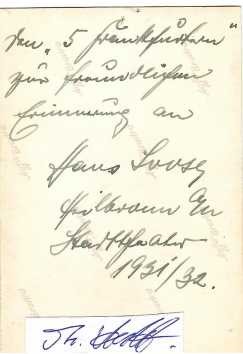 Den „5 Frankfurtern“
zur freundlichen
Erinnerung an
Hans
Heilbronn
Stadttheater
1931/32.
Th.